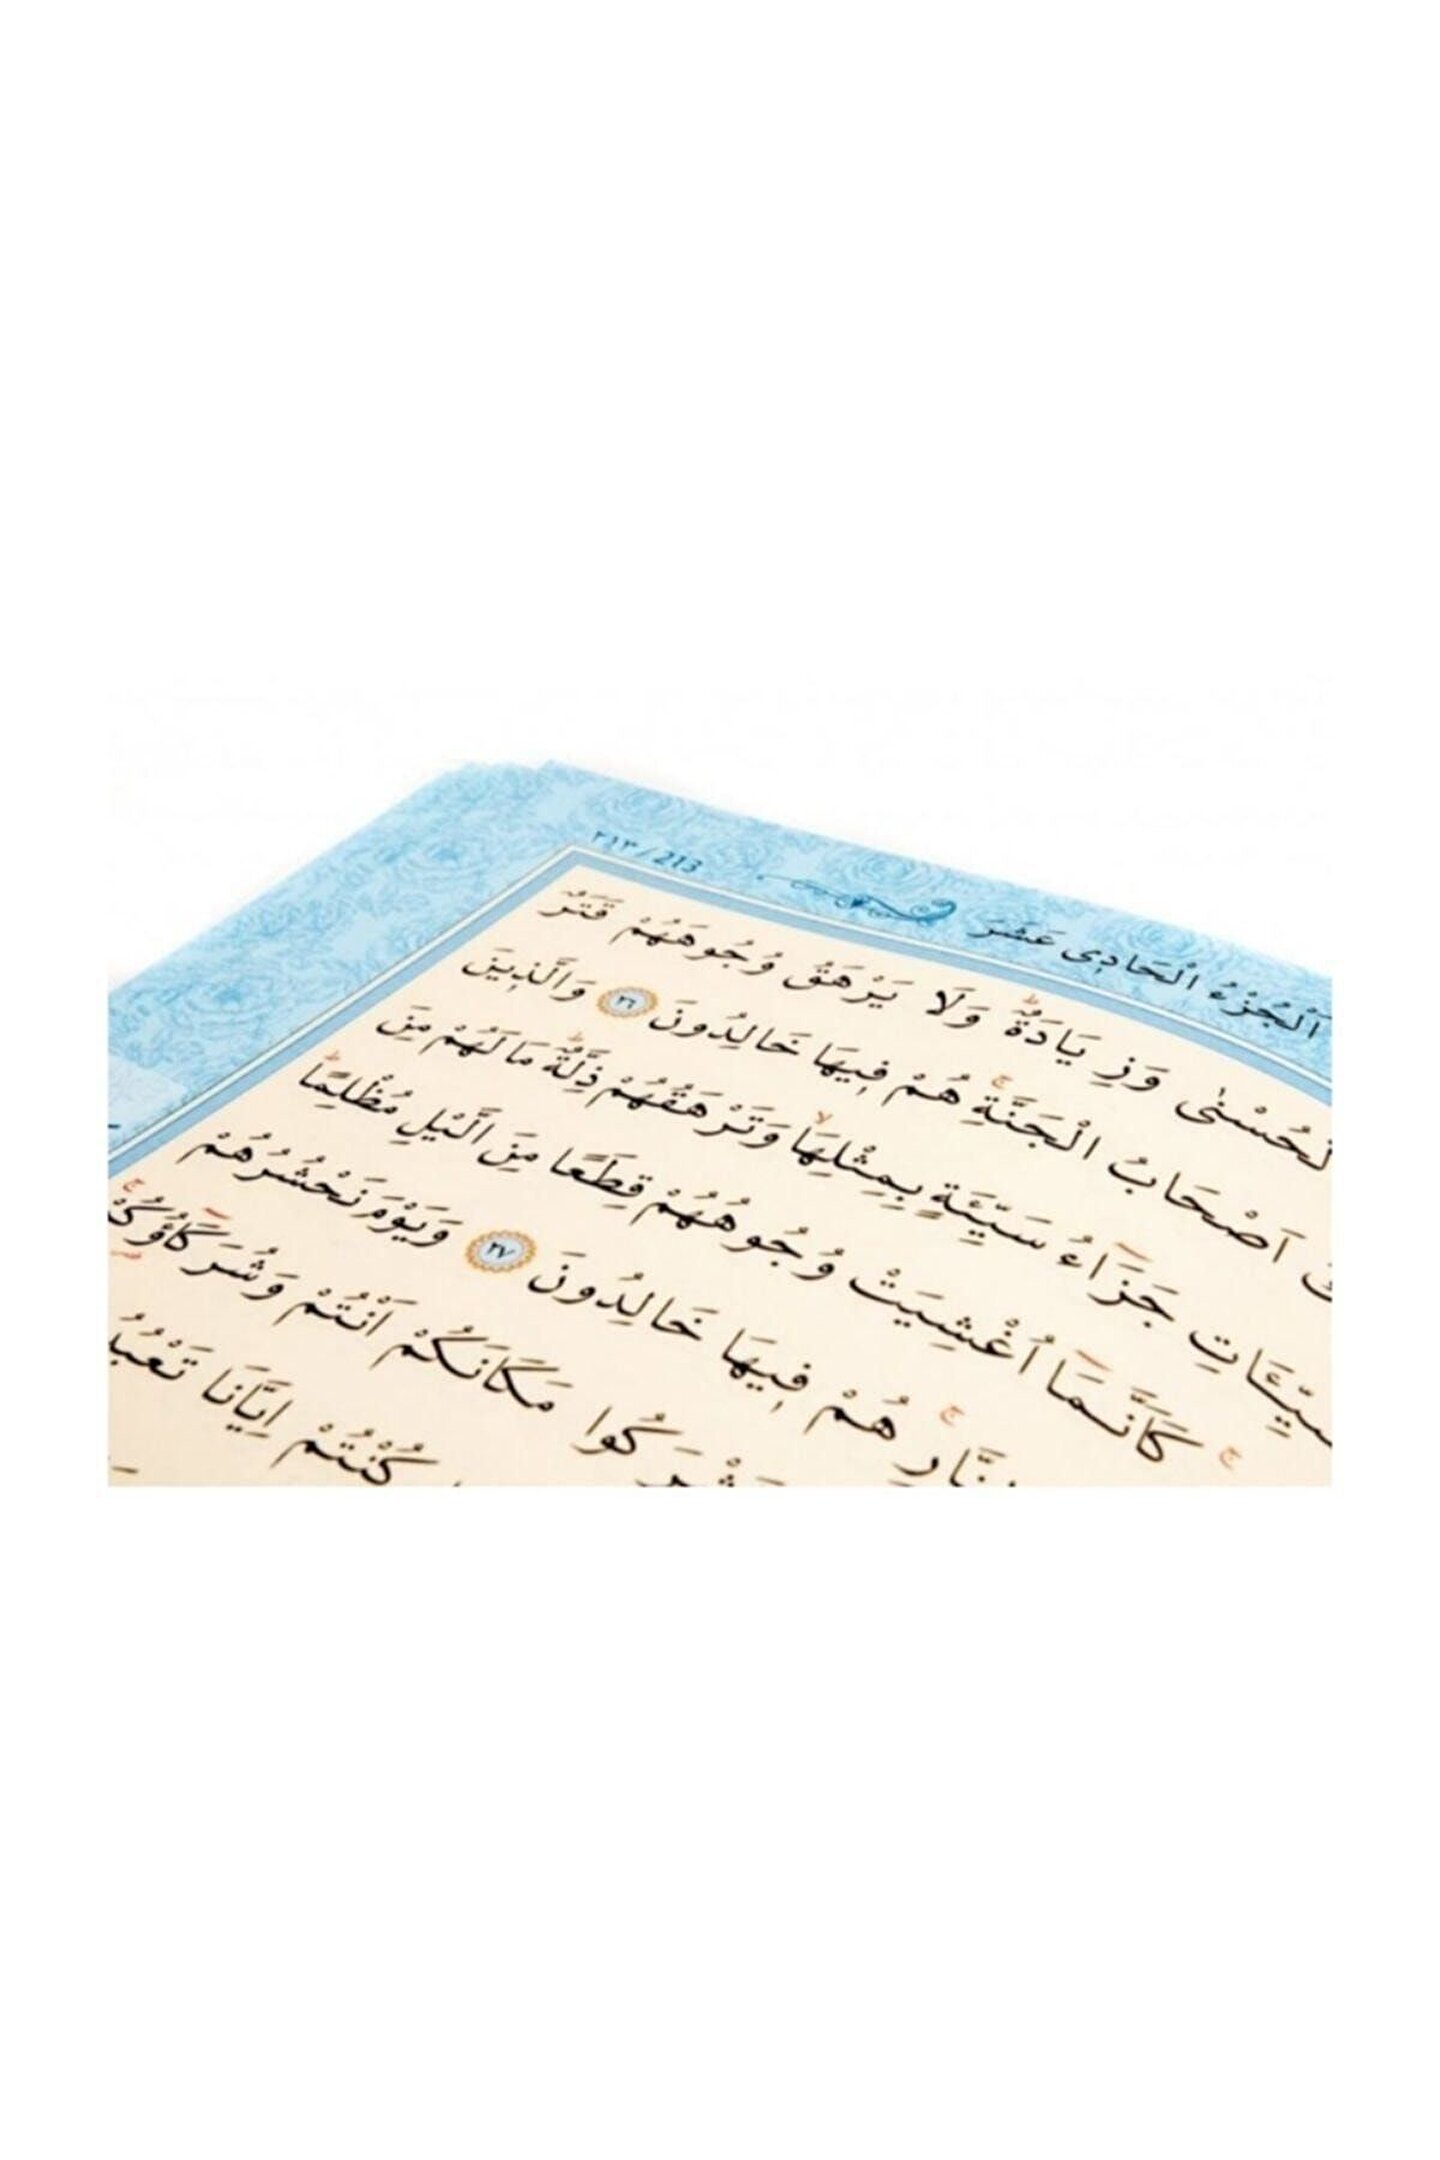 اَلْجُزْءُ الْحَادِى عَشَرَ
٢١٣ / 213
لْحُسْنٰى وَزِيَادَةٌۜ وَلَا يَرْهَقُ وُجُوهَهُمْ قَتَرٌ
اَصْحَابُ الْجَنَّةِۚ هُمْ فِيهَا خَالِدُونَ ٢٦ وَالَّذِينَ
سَيِّـَٔاتِ جَزَٓاءُ سَيِّئَةٍ بِمِثْلِهَاۙ وَتَرْهَقُهُمْ ذِلَّةٌۜ مَا لَهُمْ مِنَ
ۚ كَاَنَّمَٓا اُغْشِيَتْ وُجُوهُهُمْ قِطَعًا مِنَ الَّيْلِ مُظْلِمًاۜ
لنَّارِۚ هُمْ فِيهَا خَالِدُونَ ٢٧ وَيَوْمَ نَحْشُرُهُمْ
شْرَكُوا مَكَانَكُمْ اَنْتُمْ وَشُرَكَٓاؤُ۬كُمْۚ
كُنْتُمْ اِيَّانَا تَعْبُدُ